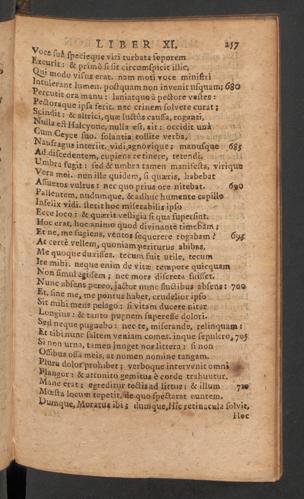 LIBER XI. 257
Voce suâ specieque viri turbata soporem
Excutit: & primò si sit circumspicit illic,
Qui modo visus erat. nam moti voce ministri
Intulerant lumen. postquam non invenit usquam; 680
Percutit ora manu: laniatque à pectore vestes:
Pectoraque ipsa ferit. nec crinem solvere curat;
Scindit: & altrici, quæ luctûs causa, roganti,
Nulla est Halcyone, nulla est, ait: occidit unà
Cum Ceyce suo. solantia tollite verba,
Naufragus interiit. vidi, agnovique: manusque 685
Ad discedentem, cupiens retinere, tetendi.
Umbra fugit: sed & umbra tamen manifesta, virique
Vera mei. non ille quidem, si quæris, habebat
Assuetos vultus: nec quo prius ore nitebat. 690
Pallentem, nudumque, & adhuc humente capillo
Infelix vidi. stetit hoc miserabilis ipso
Ecce loco: & quærit vestigia si qua supersint.
Hoc erat, hoc animo quod divinante timebam;
Et, ne, me fugiens, ventos sequerere rogabam? 695
At certè vellem, quoniam periturus abibas,
Me quoque duxisses. tecum fuit utile, tecum
Ire mihi. neque enim de vitæ tempore quicquam
Non simul egissem; nec mors discreta fuisset.
Nunc absens pereo, jactor nunc fluctibus absens: 700
Et, sine me, me pontus habet, crudelior ipso
Sit mihi mens pelago: si vitam ducere nitar
Longius: & tanto pugnem superesse dolori.
Sed neque pugnabo: nec te, miserande, relinquam:
Et tibi nunc saltem veniam comes. inque sepulcro, 705
Si non urna, tamen junget nos littera: si non
Ossibus ossa meis, at nomen nomine tangam.
Plura dolor prohibet; verboque intervenit omni
Plangor: & attonito gemitus è corde trahuntur.
Mane erat: egreditur tectis ad littus: & illum 710
Mœsta locum repetit. de quo spectarat euntem.
Dumque, Moratus ibi; dumque, Hîc retinacula solvit,
Hoc